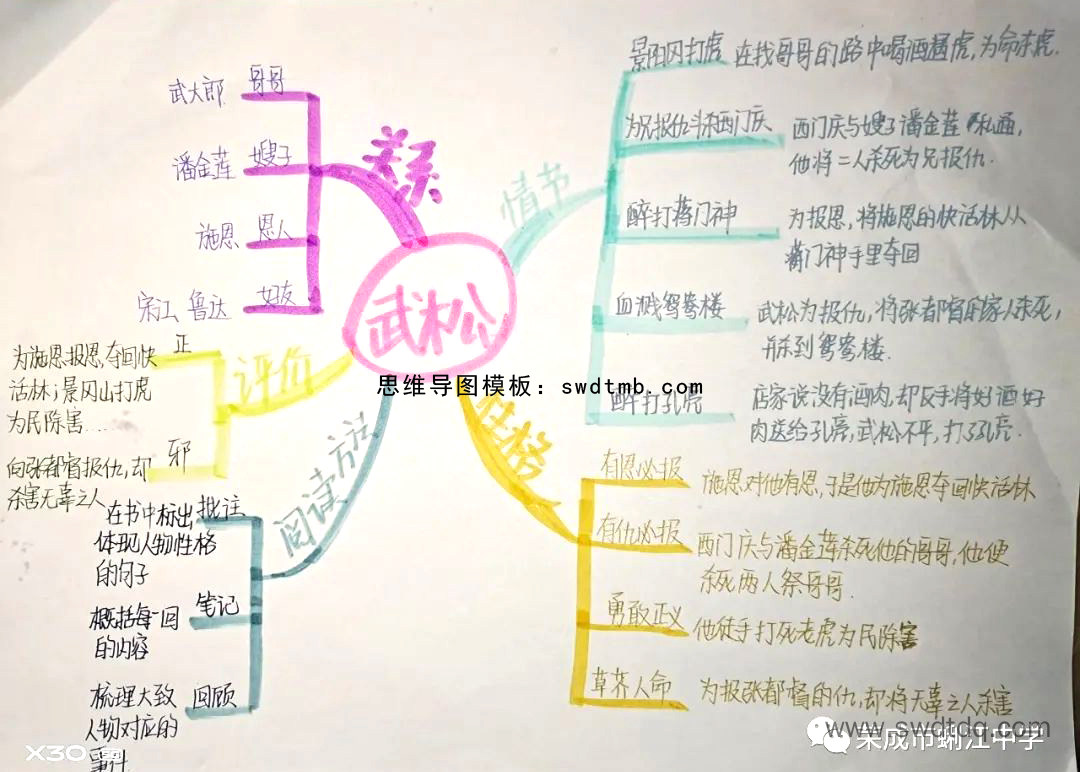 武松
关系
哥哥
武大郎
嫂子
潘金莲
恩人
施恩
好友
宋江、鲁达
情节
景阳冈打虎
在找哥哥的路中喝酒遇虎,为命杀虎.
为兄报仇斗杀西门庆
西门庆与嫂子潘金莲私通,
他将二人杀死为兄报仇.
醉打蒋门神
为报恩,将施恩的快活林从
蒋门神手里夺回
血溅鸳鸯楼
武松为报仇,将张都督的家人杀死,
并杀到鸳鸯楼.
醉打孔亮
店家说没有酒肉,却反手将好酒好
肉送给孔亮,武松不平,打了孔亮.
评价
正
为施恩报恩,夺回快
活林;景冈山打虎
为民除害....
邪
向张都督报仇,却
杀害无辜之人
思维导图模板：swdtmb.com
阅读方法
批注
在书中标出
体现人物性格
的句子
笔记
概括每一回
的内容
回顾
梳理大致
人物对应的
事件
性格
有恩必报
施恩对他有恩,于是他为施恩夺回快活林
有仇必报
西门庆与潘金莲杀死他的哥哥,他便
杀死两人祭哥哥.
勇敢正义
他徒手打死老虎为民除害
草芥人命
为报张都督的仇,却将无辜之人杀害
www.swdtdq.com
荣成市蜊江中学
X30